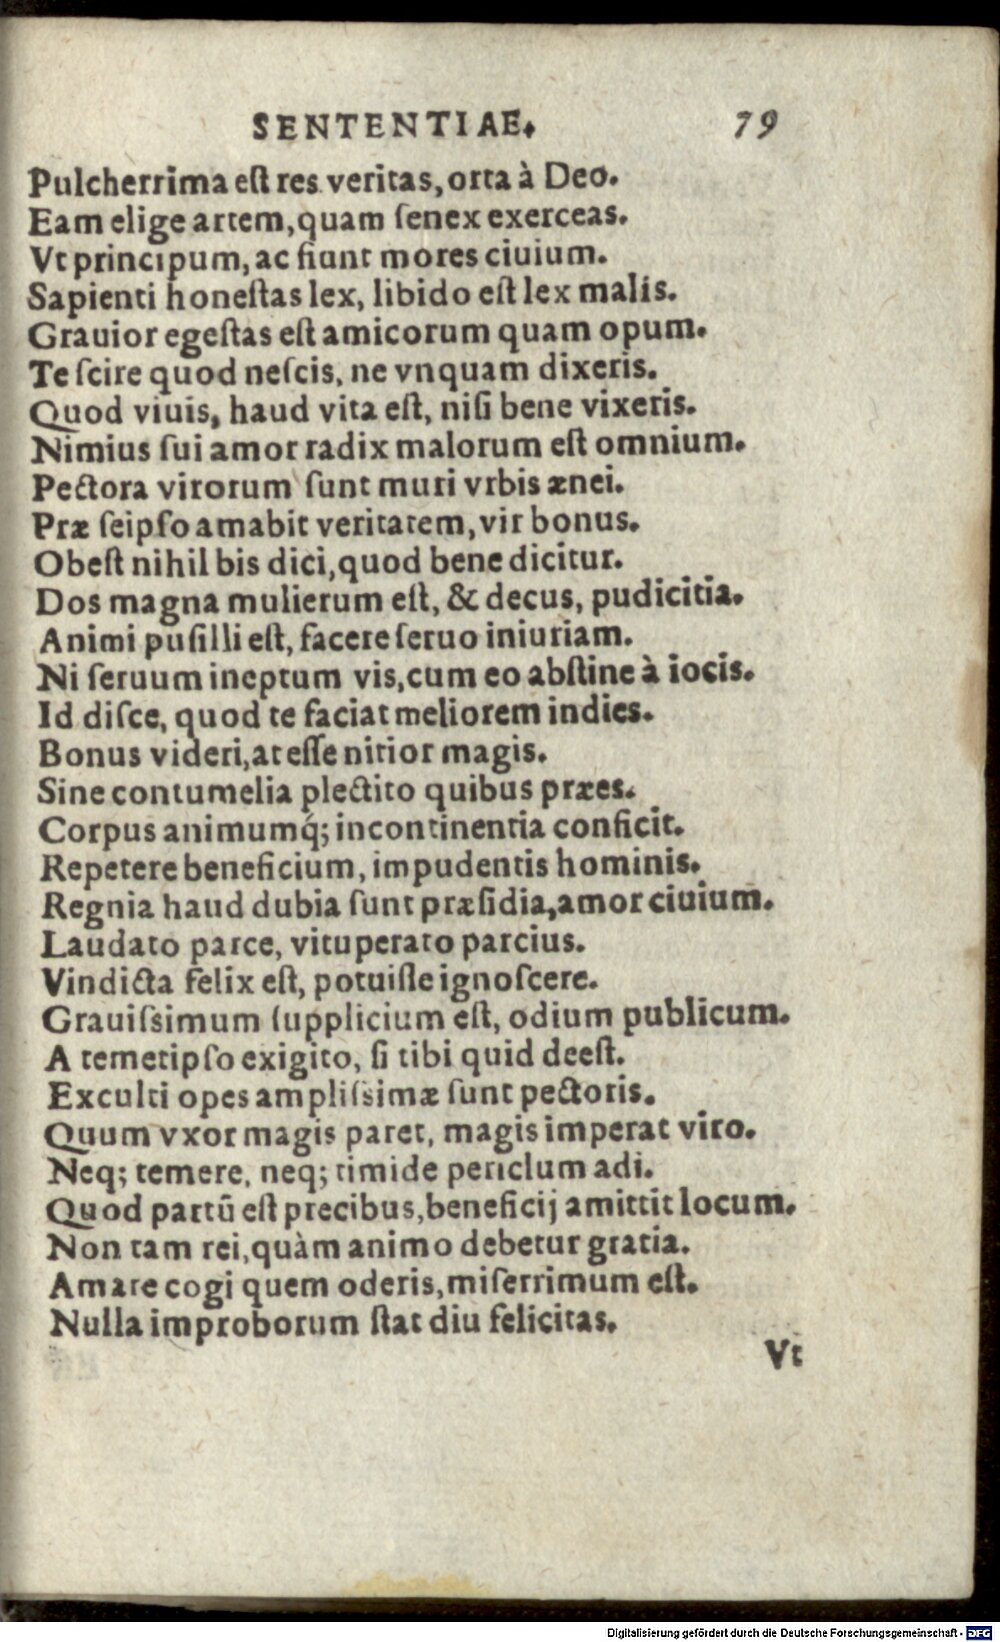 SENTENTIAE. 79
Pulcherrima eſt res veritas, orta à Deo.
Eam elige artem, quam ſenex exerceas.
Vt principum, ac fiunt mores ciuium.
Sapienti honeſtas lex, libido eſt lex malis.
Grauior egeſtas eſt amicorum quam opum.
Te ſcire quod neſcis, ne vnquam dixeris.
Quod viuis, haud vita eſt, niſi bene vixeris.
Nimius ſui amor radix malorum eſt omnium.
Pectora virorum ſunt muri vrbis ænei.
Præ ſeipſo amabit veritatem, vir bonus.
Obeſt nihil bis dici, quod bene dicitur.
Dos magna mulierum eſt, & decus, pudicitia.
Animi puſilli eſt, facere ſeruo iniuriam.
Ni ſeruum ineptum vis, cum eo abſtine à iocis.
Id diſce, quod te faciat meliorem indies.
Bonus videri, at eſſe nitior magis.
Sine contumelia plectito quibus præes.
Corpus animumq́; incontinentia conficit.
Repetere beneficium, impudentis hominis.
Regnia haud dubia ſunt præſidia, amor ciuium.
Laudato parce, vituperato parcius.
Vindicta felix eſt, potuiſſe ignoſcere.
Grauiſsimum ſupplicium eſt, odium publicum.
A temetipſo exigito, ſi tibi quid deeſt.
Exculti opes ampliſsimæ ſunt pectoris.
Quum vxor magis paret, magis imperat viro.
Neq; temere, neq; timide periclum adi.
Quod partū eſt precibus, beneficij amittit locum.
Non tam rei, quàm animo debetur gratia.
Amare cogi quem oderis, miſerrimum eſt.
Nulla improborum ſtat diu felicitas.
Vt
Digitalisierung gefördert durch die Deutsche Forschungsgemeinschaft - DFG